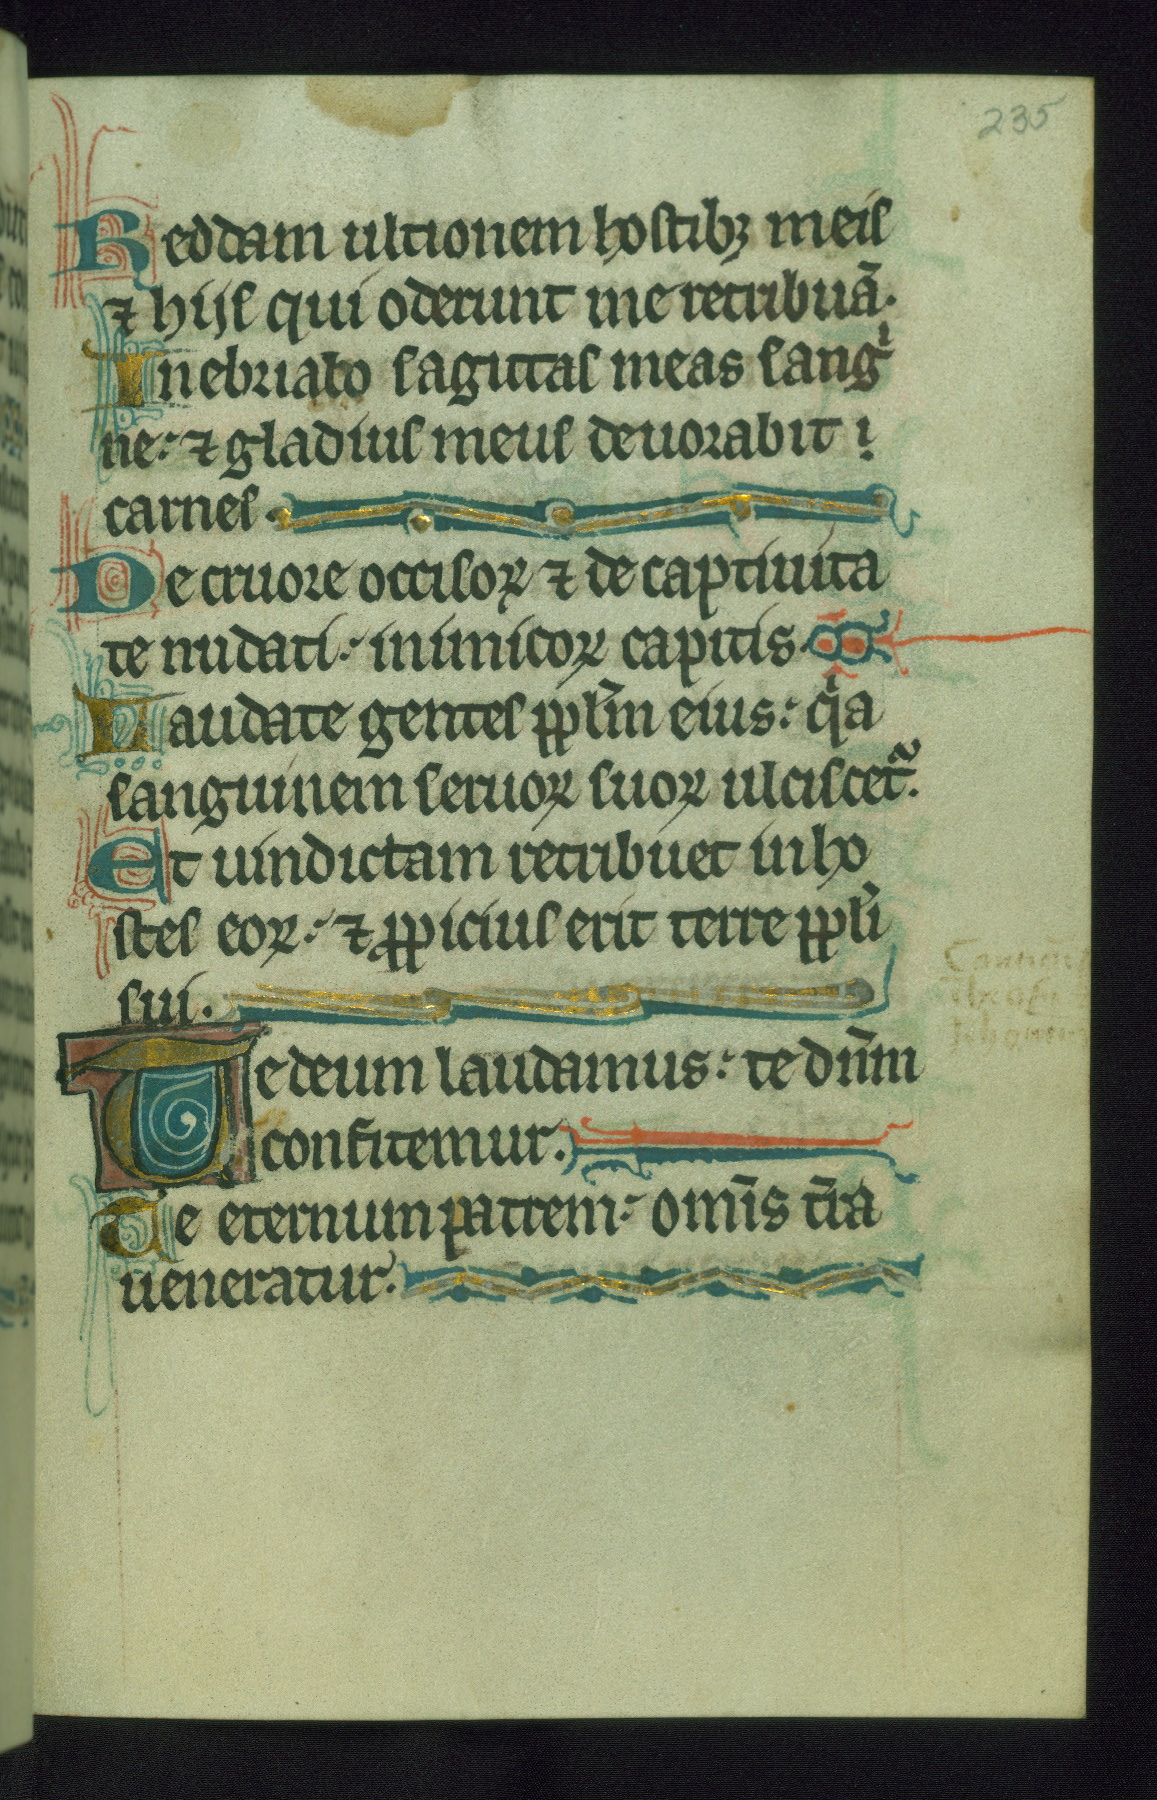 235
Reddam ultionem hostibꝫ meis
⁊ hijs qui oderunt me retribuā.
Inebriabo sagittas meas sangͥ
ne: ⁊ gladius meus deuorabit
carnes.
De cruore occisoꝝ ⁊ de captiuita
te nudati: inimicoꝝ capitis.
Laudate gentes ppl̄m eius: qͥa
sanguinem seruoꝝ suoꝝ ulciscet᷑.
Et uindictam retribuet in ho
stes eoꝝ: ⁊ ꝓpicius erit terre ppl̄i
sui.
Te deum laudamus: te dn̄m
confitemur.
Te eternum patrem: omīs t̄ra
ueneratur.